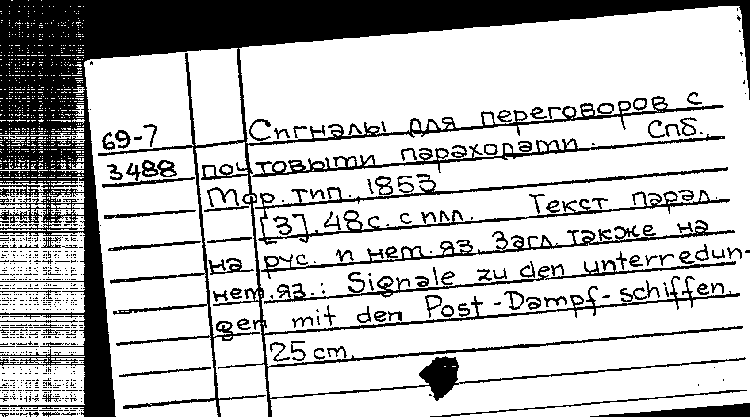 69-7 Сигналы для переговоров с
3488 почтовыми пароходами. Спб.,
Мор. тип., 1853
[3]. 48 с. с илл. Текст парал.
на рус. и нем. яз. Загл. также на
нем. яз.: Signale zu den unterredun-
gen mit den Post-Dampf-schiffen.
25 cm.